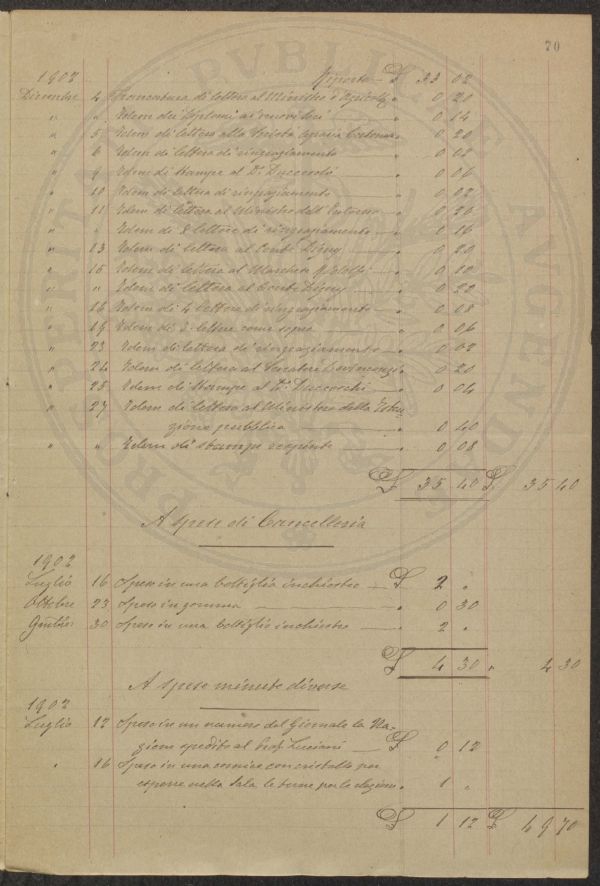 70
1902 Riporto £ 33 02
Dicembre 4 Francatura di lettera al Ministro d'Agricolt. " 0 20
" " Idem dei Diplomi ai nuovi Soci " 0 14
" 5 Idem di lettera alla Società Agraria " 0 20
" 6 Idem di lettera di ringraziamento " 0 02
" 9 Idem di stampe al Dr. Duccoschi " 0 06
" 10 Idem di lettera di ringraziamento " 0 02
" 11 Idem di lettera al Ministro dell'Interno " 0 20
" " Idem di 8 lettere di ringraziamento " 0 16
" 13 Idem di lettera al Conte Digny " 0 20
" 15 Idem di lettera al Marchese Ridolfi " 0 10
" " Idem di lettera al Conte Digny " 0 22
" 16 Idem di 4 lettere di ringraziamento " 0 08
" 19 Idem di 3 lettere come sopra " 0 06
" 23 Idem di lettera di ringraziamento " 0 02
" 24 Idem di lettera al Senatore " 0 20
" 25 Idem di stampe al Dr. Duccoschi " 0 04
" 27 Idem di lettera al Ministro della Istru-
zione pubblica " 0 40
" " Idem di stampe respinte " 0 08
£ 35 40 £ 35 40
A spese di Cancelleria
1902
Luglio 16 Speso in una bottiglia inchiostro £ 2 "
Ottobre 23 Speso in gomma " 0 30
30 Speso in una bottiglia inchiostro " 2 "
£ 4 30 " 4 30
A spese minute diverse
1902
Luglio 12 Speso in un numero del Giornale la Na-
zione spedito al Prof. Luciani £ 0 12
" 16 Speso in una cornice con cristallo per
esporre nella Sala le terne per le elezioni " 1 "
£ 1 12 £ 49 70
PROSPERITATI PVBLICAE AVGENDAE